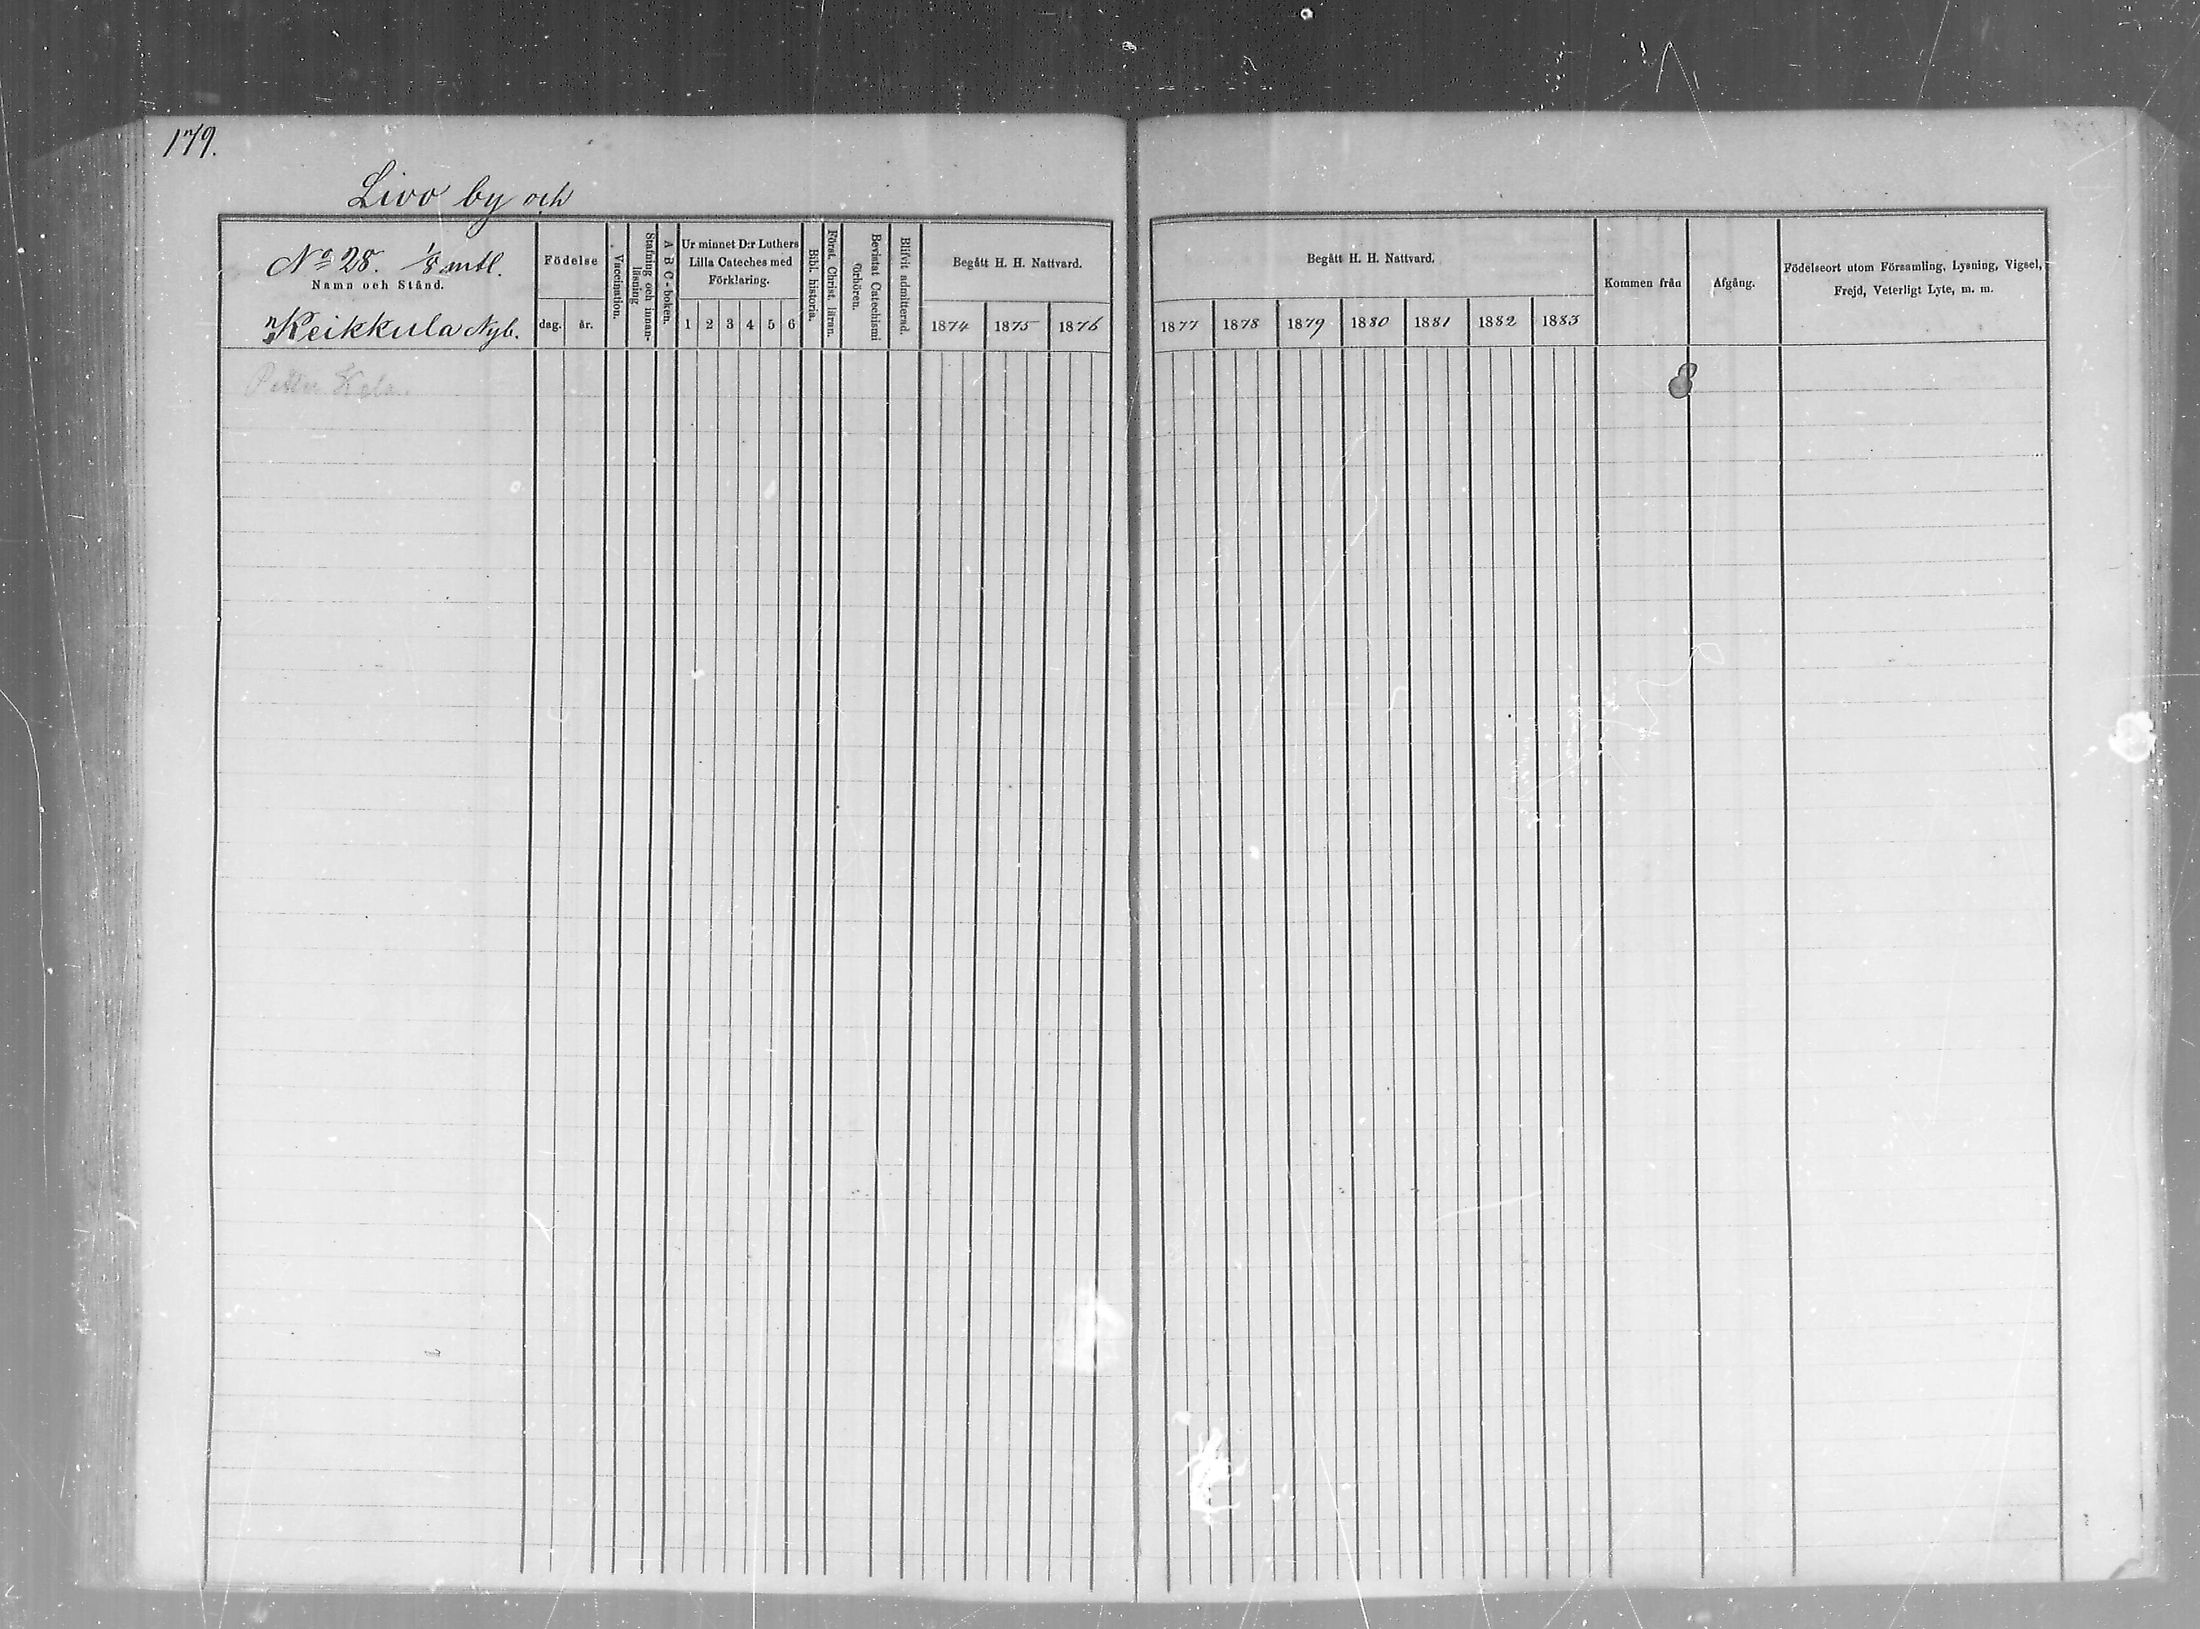 179.
Livo by och
No 28. 1/8 mtl.
Namn och Stånd.
Keikkula Nyb.
Födelse
dag. år.
Vaccination.
Stafning och innan-
läsning
A B C - boken.
Ur minnet D:r Luthers
Lilla Cateches med
Förklaring.
1 2 3 4 5 6
Bibl. historia.
Först. Christ. läran.
Bevistat Catechismi
förhören.
Blifvit admitterad.
Begått H. H. Nattvard.
1874 1875 1876
Begått H. H. Nattvard.
1877 1878 1879 1880 1881 1882 1883
Kommen från
Afgång.
Födelseort utom Församling, Lysning, Vigsel,
Frejd, Veterligt Lyte, m. m.
Petter